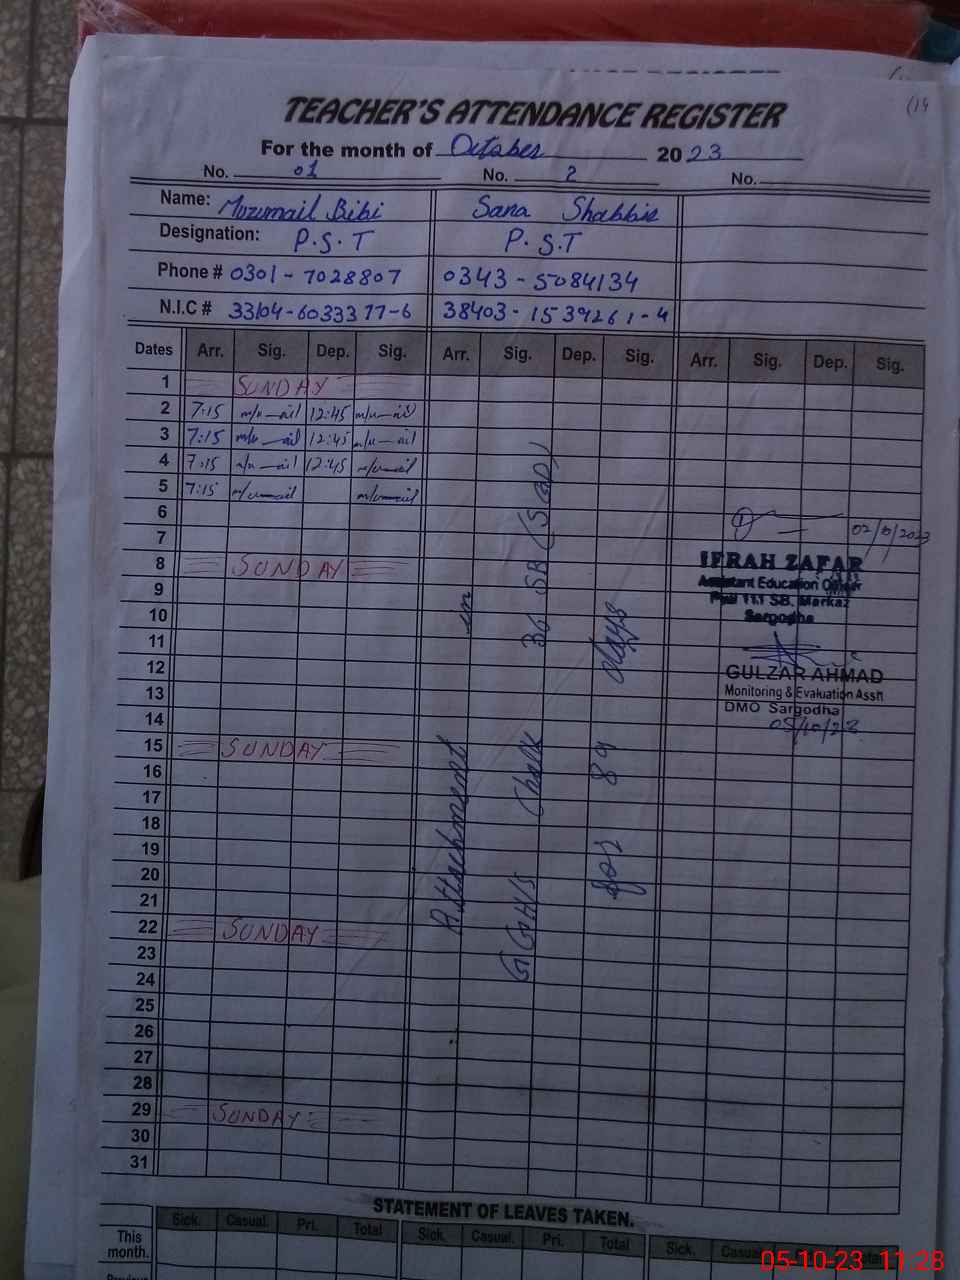 TEACHER'S ATTENDANCE REGISTER
For the month of October 2023
No. 01 No. 2 No.
Name: Mozumail Bibi Sana Shabbir
Designation: P.S.T P.S.T
Phone # 0301-7028807 0343-5084134
N.I.C # 33104-6033377-6 38403-1539261-4
Dates Arr. Sig. Dep. Sig. Arr. Sig. Dep. Sig. Arr. Sig. Dep. Sig.
1 SUNDAY
2 7:15 m/u-ail 12:45 m/u-ail
3 7:15 m/u-ail 12:45 m/u-ail
4 7:15 m/u-ail 12:45 m/u-ail
5 7:15 m/u-ail m/u-ail
6
7
8 SUNDAY
9
10
11
12
13
14
15 SUNDAY
16
17
18
19
20
21
22 SUNDAY
23
24
25
26
27
28
29 SUNDAY
30
31
Attachment in
GGHS Chak 36 SB (SGD)
for 89 days
02/10/2023
IFRAH ZAFAR
Assistant Education Officer
111 SB, Markaz
Sargodha
GULZAR AHMAD
Monitoring & Evaluation Asstt
DMO Sargodha
05/10/23
STATEMENT OF LEAVES TAKEN.
Sick. Casual. Pri. Total Sick. Casual. Pri. Total Sick. Casual
This
month.
05-10-23 11:28